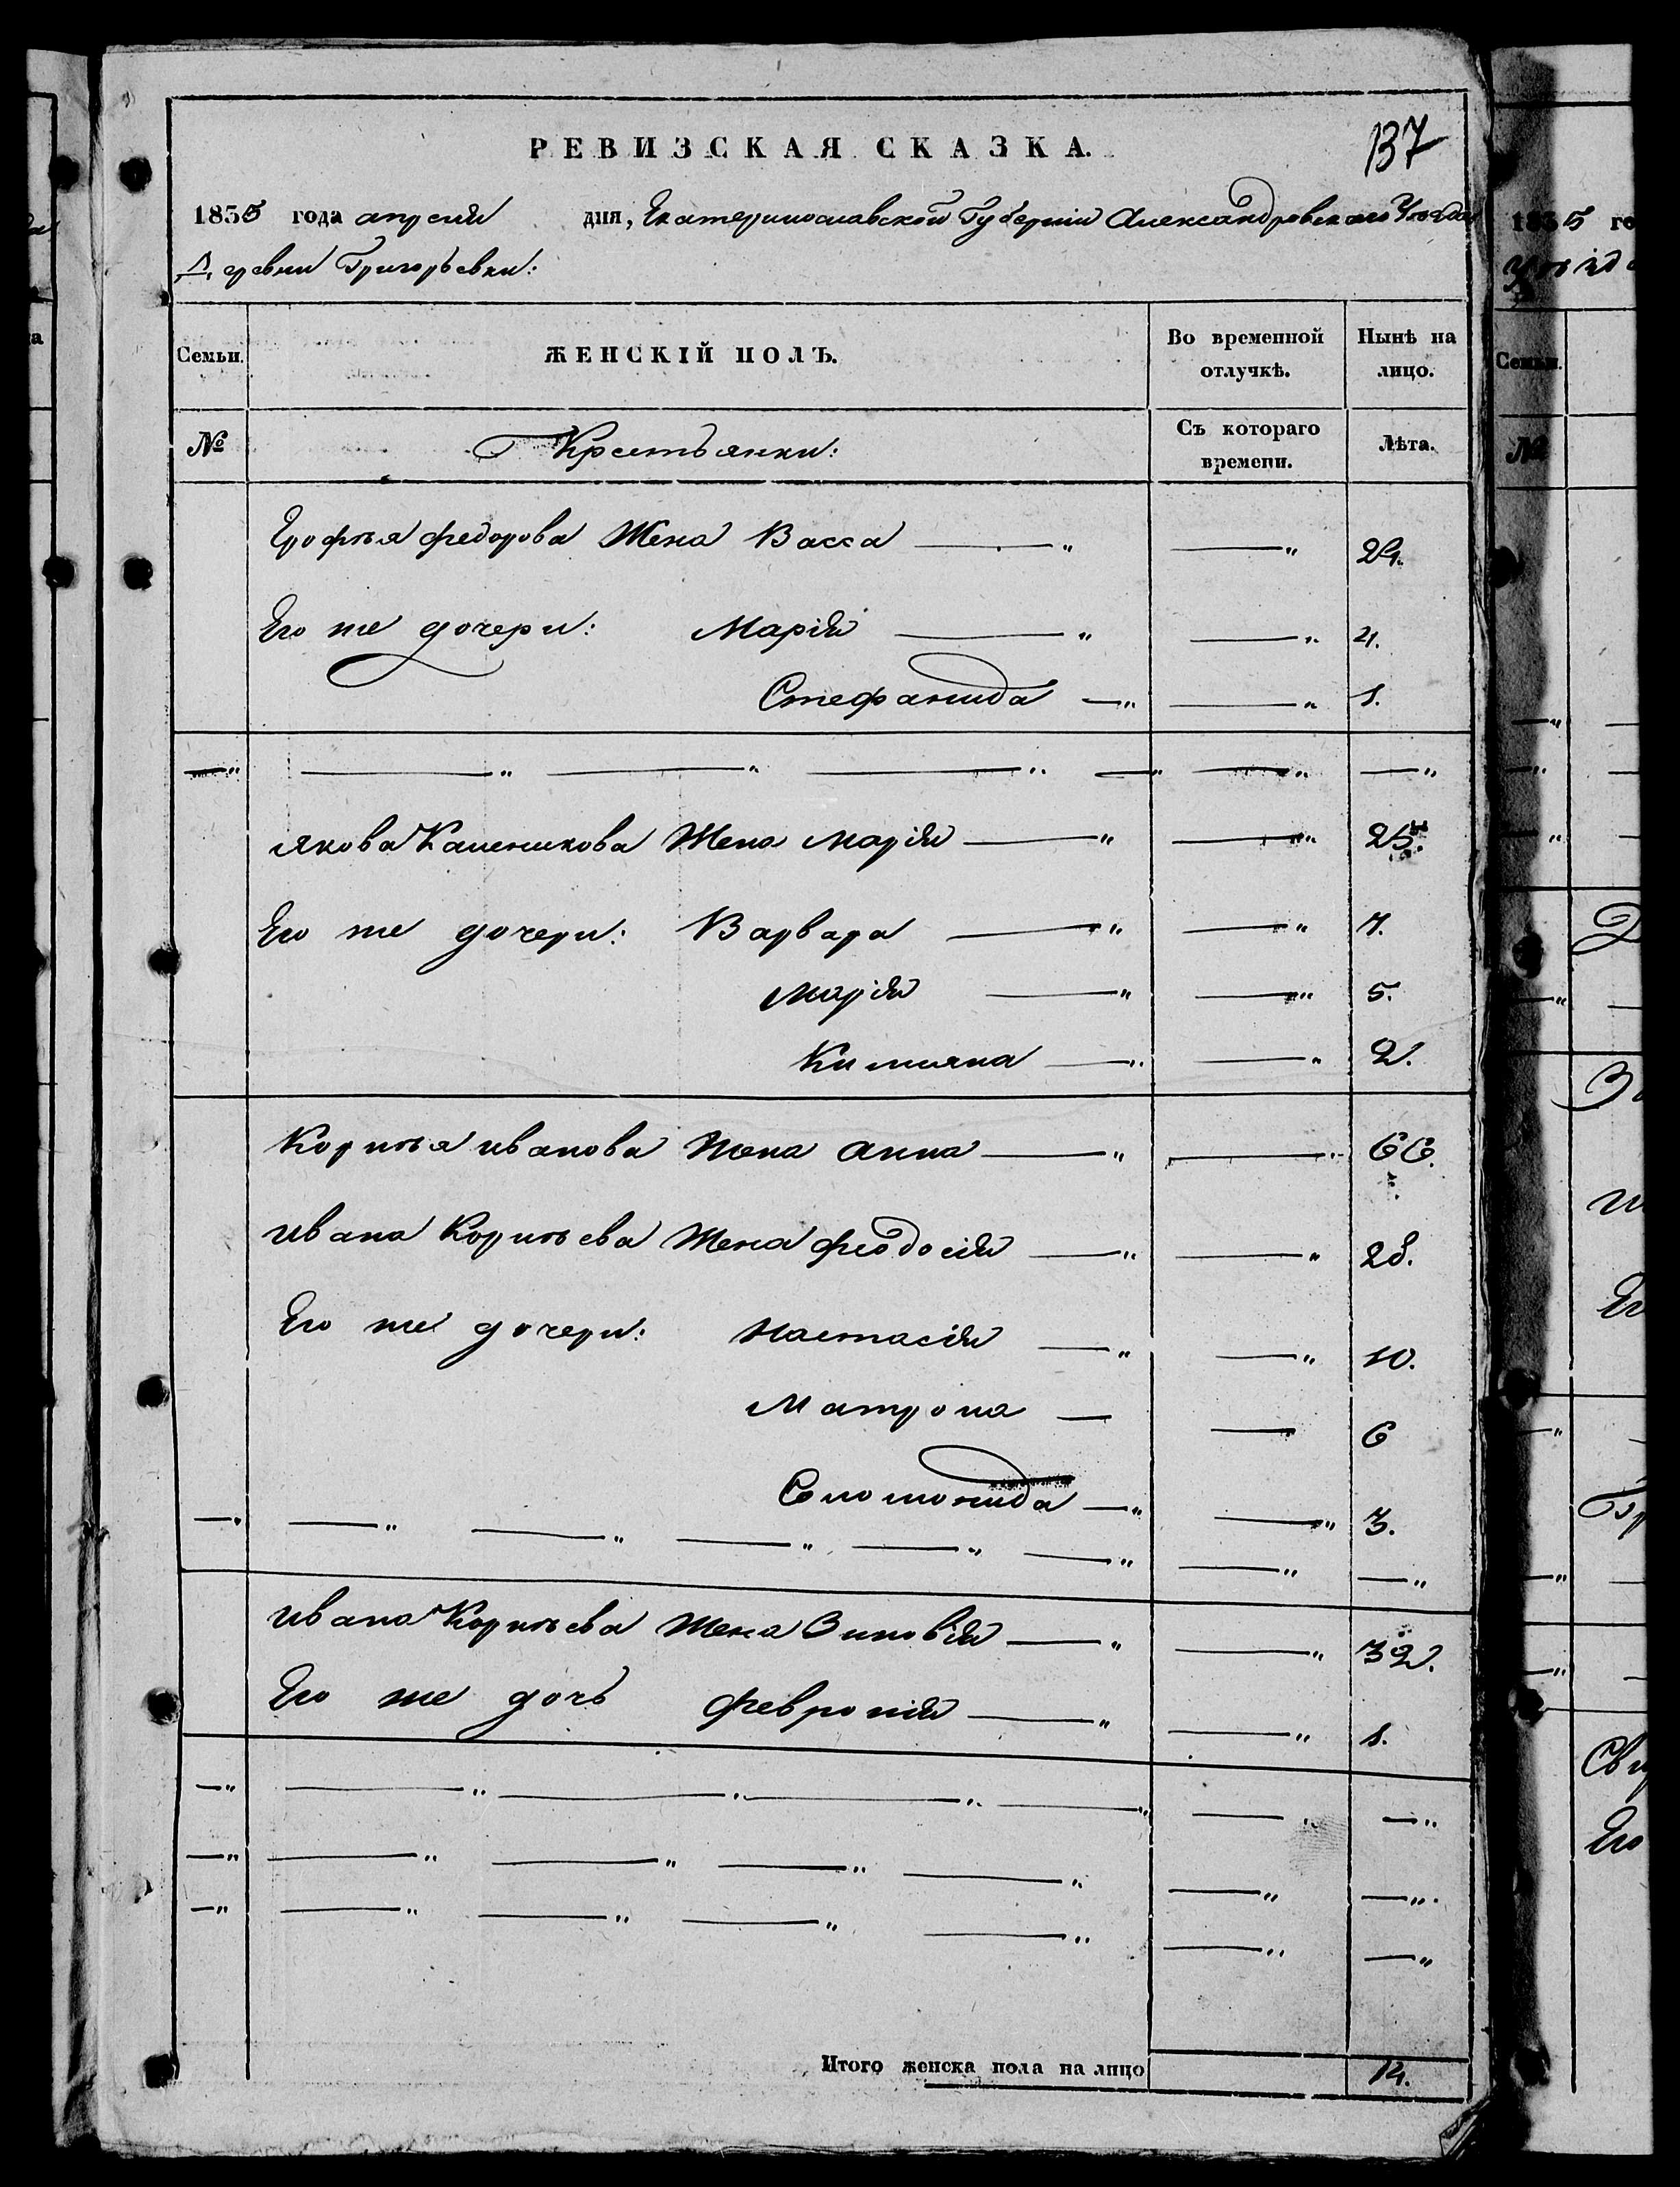 137
РЕВИЗСКАЯ СКАЗКА.
1835 года апреля дня, Екатеринославской Губерніи Александровскаго Уѣзда
Деревни Григорьевки:
Семьи. ЖЕНСКІЙ ПОЛЪ. Во временной отлучкѣ. Нынѣ на лицо.
№ Крестьянки: Съ котораго времени. Лѣта.
Ерофѣя Федорова Жена Васса —„ —„ 24.
Его же дочери: Марія —„ —„ 4.
Стефанида —„ —„ 1.
—„ —„ —„ —„ —„ —„ —„
Якова Каленикова Жена Марія —„ —„ 25.
Его же дочери: Варвара —„ —„ 7.
Марія —„ —„ 5.
Килияна —„ —„ 2.
Корнѣя Иванова Жена Анна —„ —„ 66.
Ивана Корнѣева Жена Феодосія —„ —„ 28.
Его же дочери: Настасія —„ —„ 10.
Матрона — — 6
Соломонида —„ —„ 3.
—„ —„ —„ —„ —„ —„ —„ —„
Ивана Корнѣева Жена Зиновія —„ —„ 32.
Его же дочь Февронія —„ —„ 1.
—„ —„ —„ —„ —„ —„ —„
—„ —„ —„ —„ —„ —„ —„
—„ —„ —„ —„ —„ —„ —„
Итого женска пола на лицо 14.